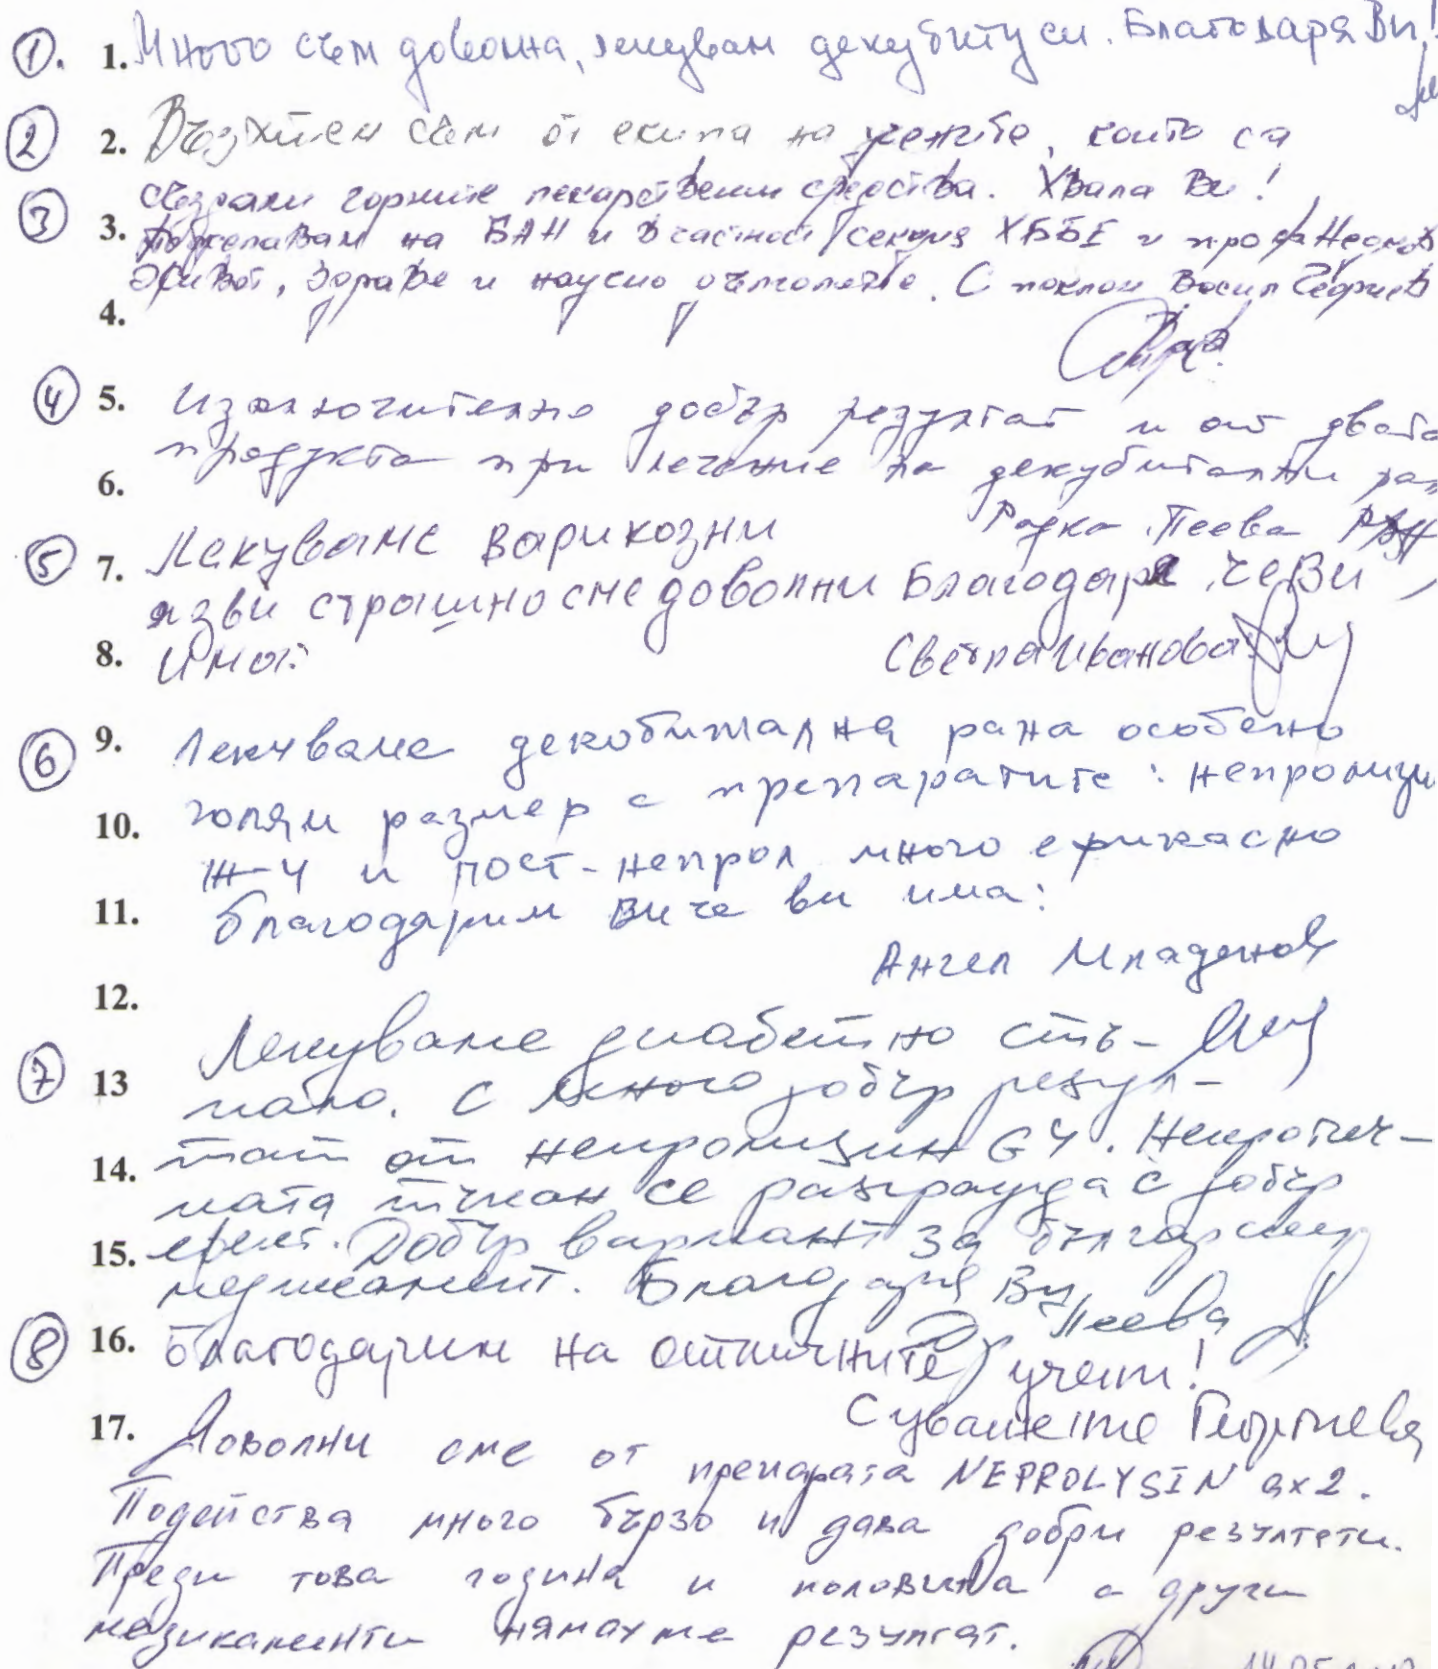 ①. 1. Много съм доволна, лекувам декубитуси. Благодаря Ви!
② 2. Възхитен съм от екипа на учените, които са
създали горните лекарствени средства. Хвала Ви!
③ 3. Пожелавам на БАН и в частност секция ХББЕ и проф.
живот, здраве и научно дълголетие. С поклон Васил Георгиев
4.
④ 5. Изключително добър резултат и от двата
продукта при лечение на декубитални
6.
Радка Пеева
⑤ 7. Лекуваме варикозни
язви страшно сме доволни Благодаря, че Ви
8. има:
Светла Иванова
⑥ 9. Лекуваме декобитална рана особено
голям размер с препаратите: непролизи
10.
Ж-4 и пост-непрол много ефикасно
11. благодарим Ви че ви има:
Ангел Младенов
12.
Лекуваме диабетно стъ-
⑦ 13 пало. С много добър резул-
14. тат от непролизин G4. Некротич-
ната тъкан се разгражда с добър
15. ефект. Добър вариант за български
медикамент. Благодаря Ви,
Др Пеева
⑧ 16. Благодарим на отличните учени!
Георгиева
17. Доволни сме от препарата NEPROLYSIN ax2.
Подейства много бързо и дава добри резултети.
Преди това година и половина с други
медикаменти нямахме резултат.